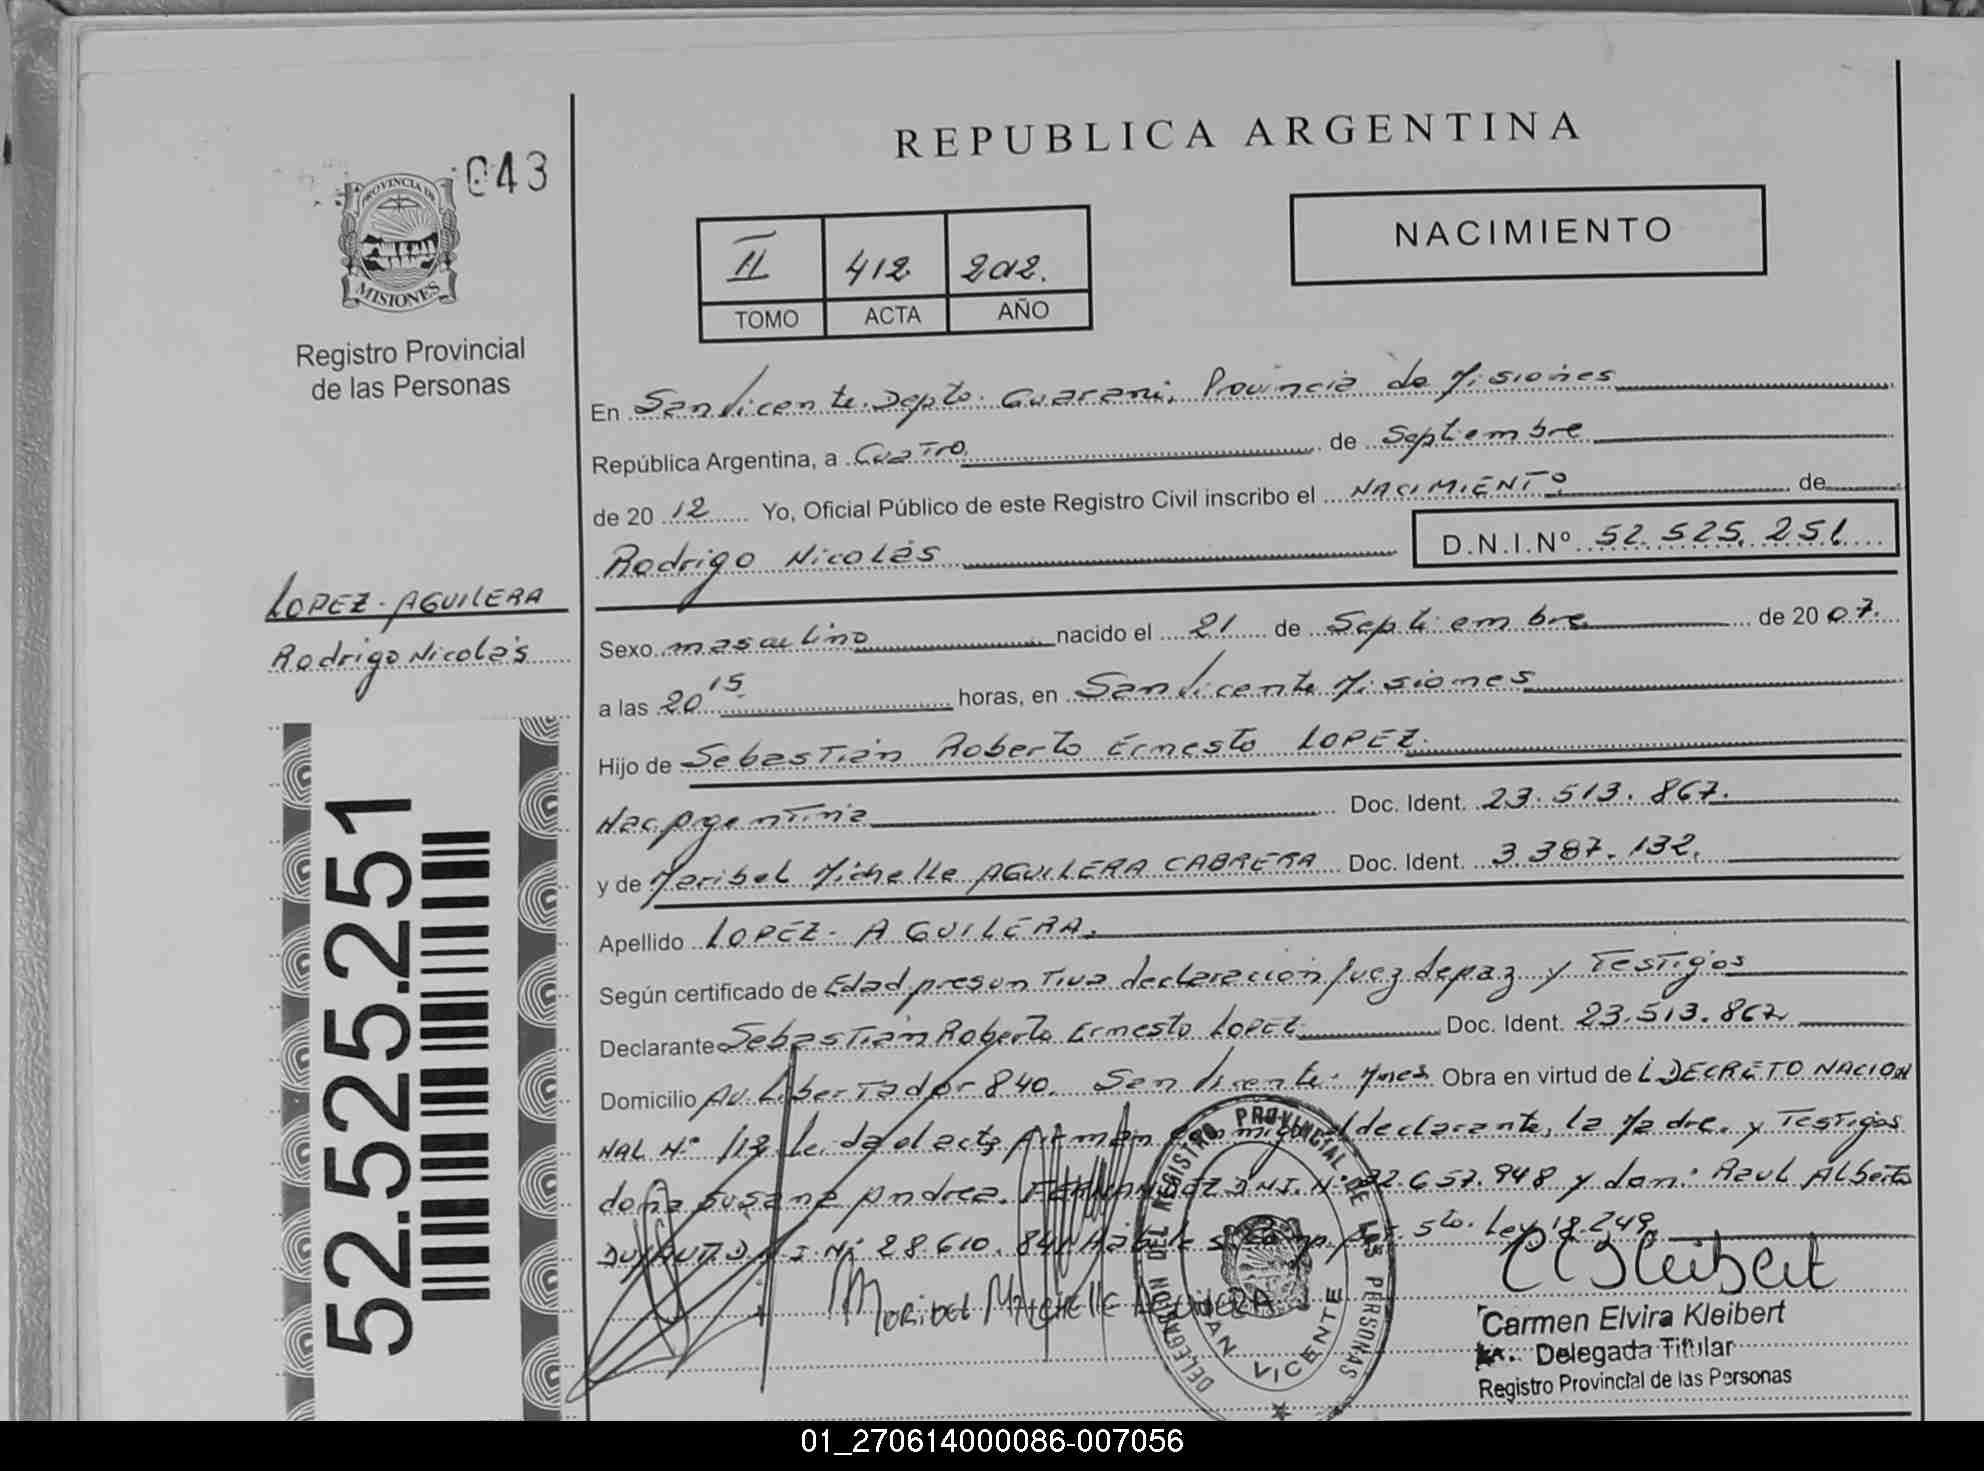 043
PROVINCIA DE
MISIONES
Registro Provincial
de las Personas
REPUBLICA ARGENTINA
NACIMIENTO
II 412 2012.
TOMO ACTA AÑO
En San Vicente. Depto. Guarani, Provincia de Misiones
República Argentina, a Cuatro de Septiembre
de 20 12 Yo, Oficial Público de este Registro Civil inscribo el NACIMIENTO de
Rodrigo Nicolás D.N.I.Nº 52.525.251
LOPEZ-AGUILERA
Rodrigo Nicolás
Sexo masculino nacido el 21 de Septiembre de 20 07.
a las 20 15 horas, en San Vicente Misiones
Hijo de Sebastián Roberto Ernesto LOPEZ.
Nac. Argentina Doc. Ident. 23.513.867.
y de Maribel Michelle AGUILERA CABRERA Doc. Ident. 3.387.132.
Apellido LOPEZ - AGUILERA.
Según certificado de Edad presuntiva declaración Juez de paz y Testigos
Declarante Sebastián Roberto Ernesto LOPEZ Doc. Ident. 23.513.867
Domicilio Av. Libertador 840. San Vicente. Mnes Obra en virtud de L DECRETO NACIO
NAL Nº /12 leida el acta, firman conmigo el declarante, la Madre, y Testigos
doña Susana Andrea. FERNANDEZ DNI. Nº 22.657.948 y don: Raul Alberto
D.N.I. Nº 28.610.841 Hábiles 5to. Ley 18.249.
52.525.251
MORIBEL MAICHELLE AGUILERA
DELEGACION DEL REGISTRO PROVINCIAL DE LAS PERSONAS
SAN VICENTE
C E Kleibert
Carmen Elvira Kleibert
Delegada Titular
Registro Provincial de las Personas
01_270614000086-007056